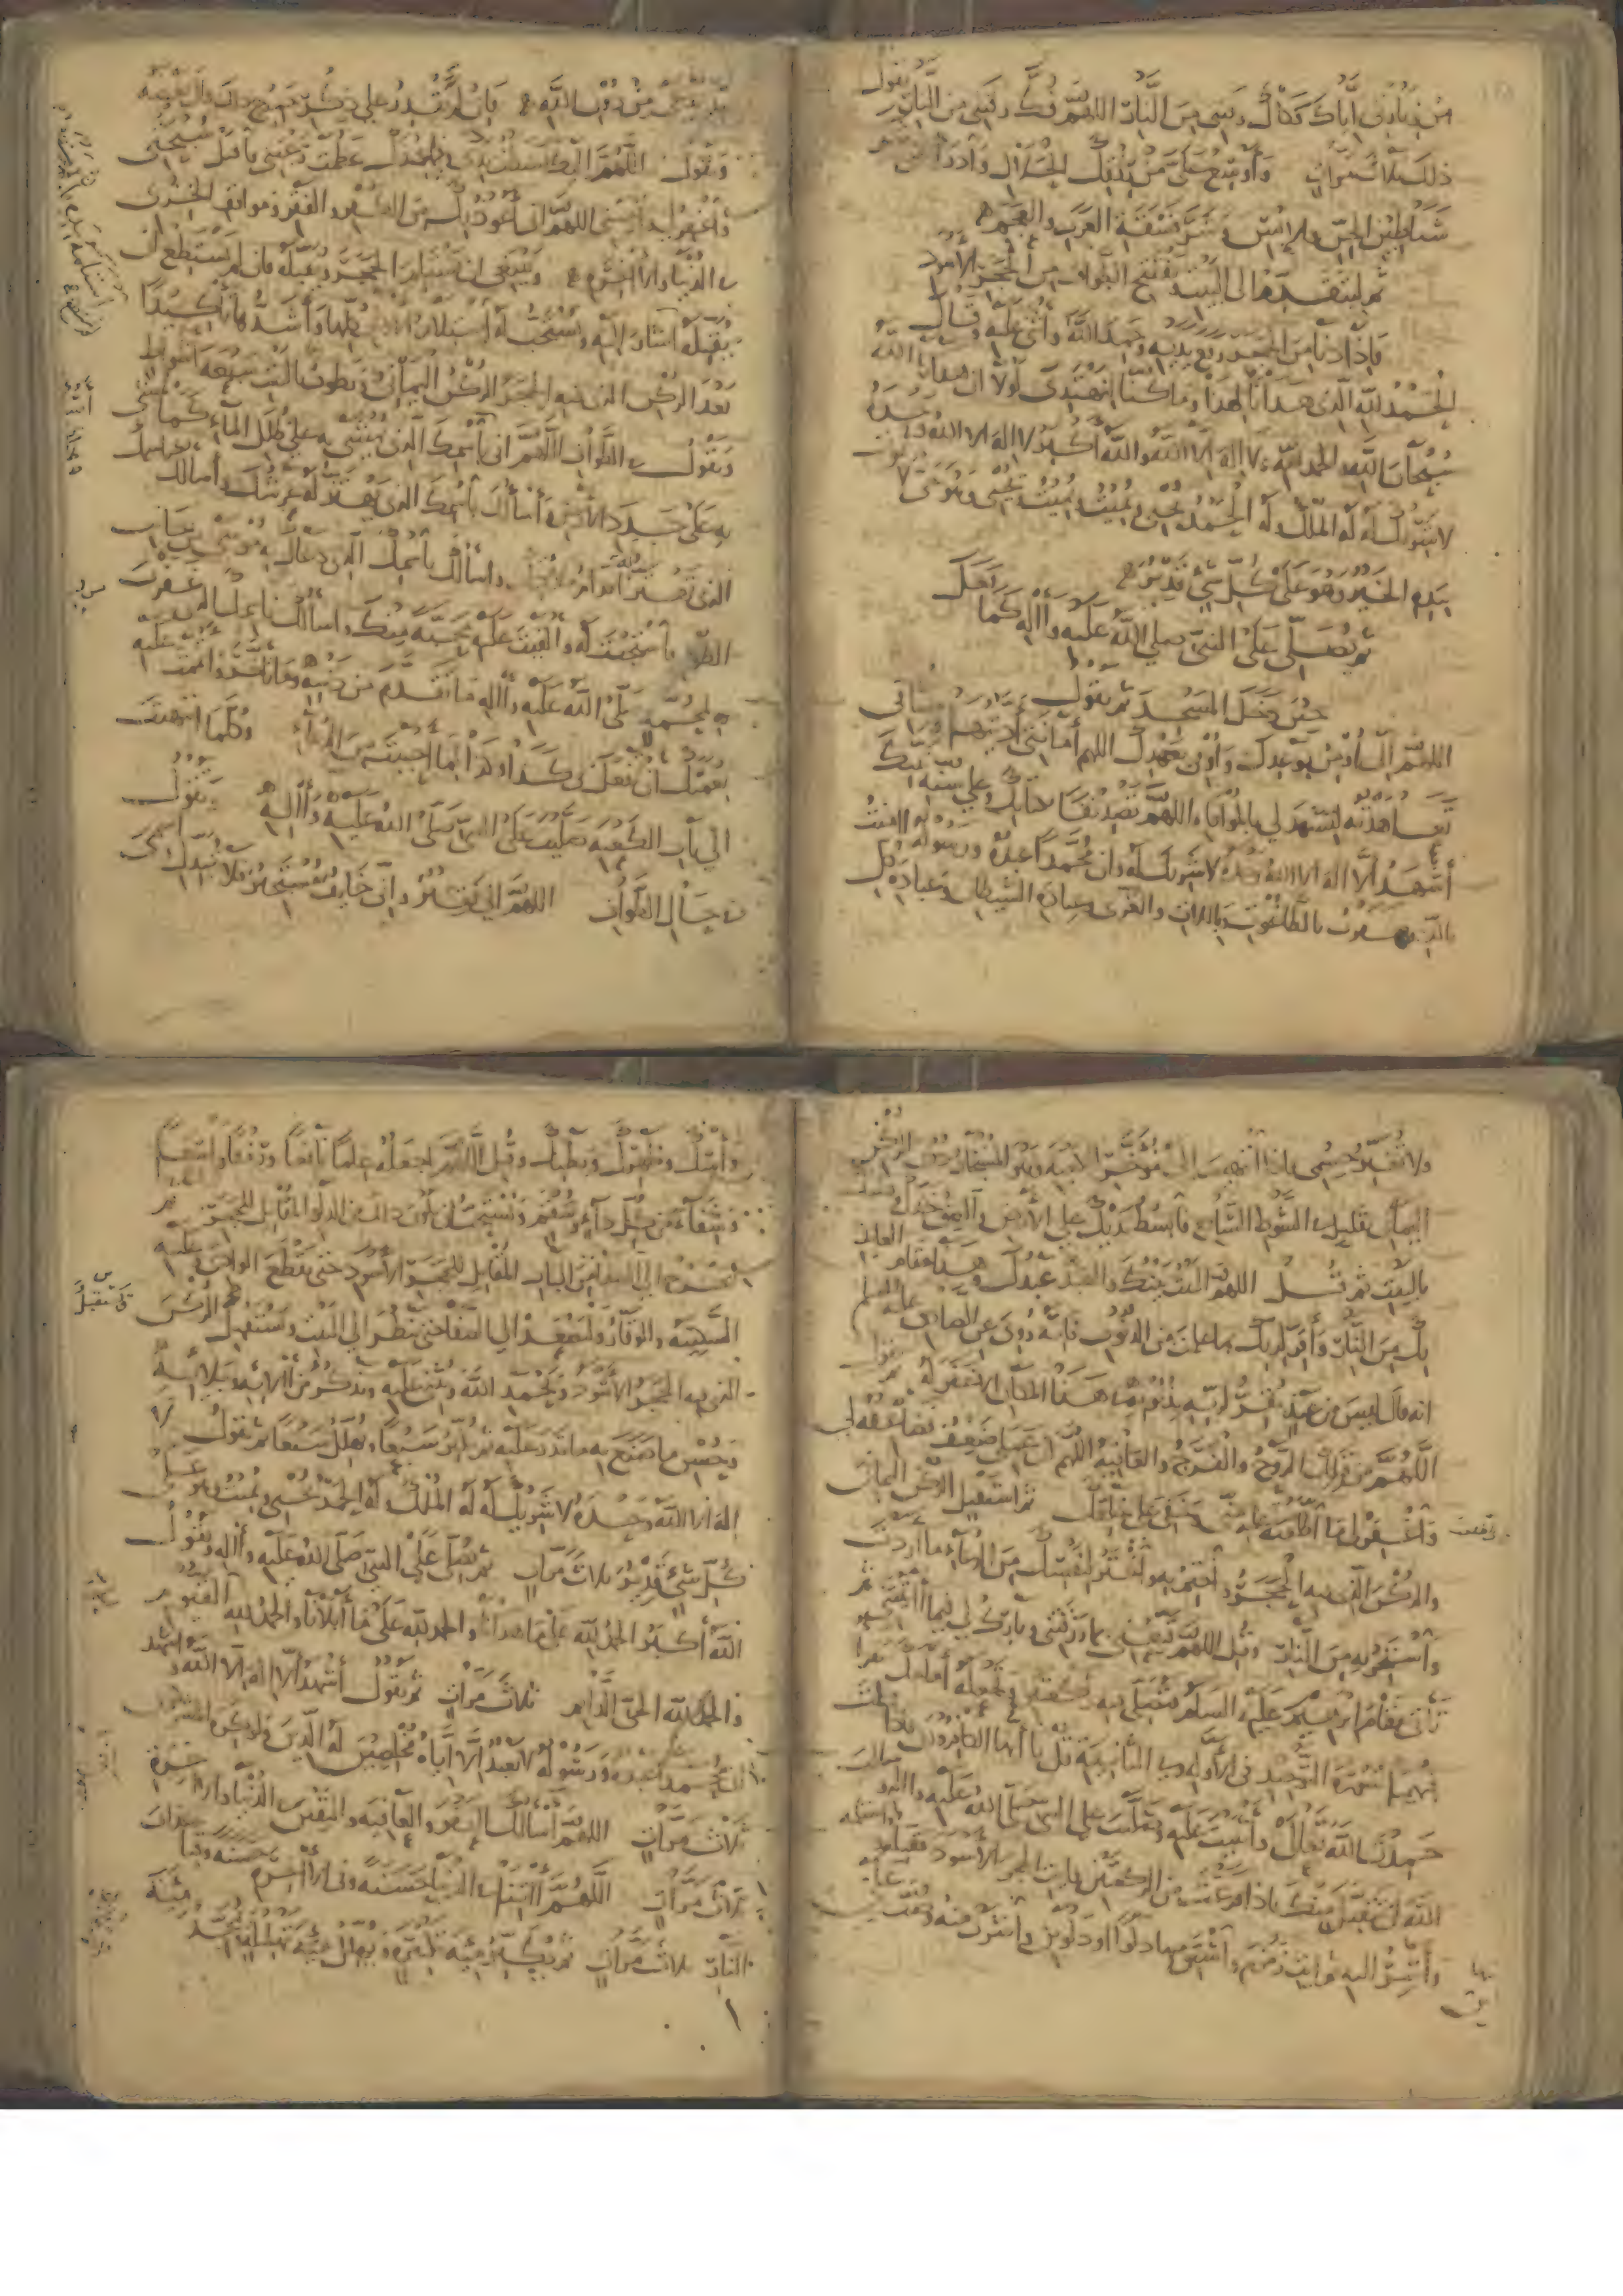 من زيارتي اياك فكاك رقبتي من النار اللهم فك رقبتي من النار يقول
ذلك ثلاث مرات وأوسع علي من رزقك الحلال وادرأ عني شر
شياطين الجن والانس وشر فسقة العرب والعجم
ثم ليتقدم الى البيت يفتتح الطواف من الحجر الاسود
فاذا دنا من الحجر رفع يديه وحمد الله وأثنى عليه وقال
الحمد لله الذي هدانا لهذا وما كنا لنهتدي لولا ان هدانا الله
سبحان الله والحمد لله ولا اله الا الله والله أكبر لا اله الا الله وحده
لا شريك له له الملك وله الحمد يحيي ويميت ويميت ويحيي وهو حي لا يموت
بيده الخير وهو على كل شيء قدير
ثم يصلي على النبي صلى الله عليه وآله كما فعل
حين دخل المسجد ثم يقول
اللهم اني أومن بوعدك وأوفي بعهدك اللهم أمانتي أديتها وميثاقي
تعاهدته لتشهد لي بالموافاة اللهم تصديقا بكتابك وعلى سنة نبيك
أشهد ألا اله الا الله وحده لا شريك له وأن محمدا عبده ورسوله آمنت
بالله وكفرت بالطاغوت وباللات والعزى وعبادة الشيطان وعبادة كل
ند يدعى من دون الله فان لم تقدر على ذكر جميع ذلك قال بعضه
وتقول اللهم اليك بسطت يدي وفيما عندك عظمت رغبتي فاقبل سبحتي
واغفر لي وارحمني اللهم اني أعوذ بك من الكفر والفقر ومواقف الخزي
في الدنيا والآخرة وينبغي ان تستلم الحجر وتقبله فان لم يستطع ان
يقبله أشار اليه ويستحب له استلام الاركان كلها وأشدها تأكيدا
بعد الركن الذي فيه الحجر الركن اليماني ويطوف بالبيت سبعة اشواط
ويقول في الطواف اللهم اني أسألك باسمك الذي يمشى به على طلل الماء كما يمشى
به على جدد الارض وأسألك باسمك الذي يهتز له عرشك وأسألك باسمك
الذي تهتز له أقدام ملائكتك وأسألك باسمك الذي دعاك به موسى من جانب
الطور فاستجبت له وألقيت عليه محبة منك وأسألك باسمك الذي غفرت
به لمحمد صلى الله عليه وآله ما تقدم من ذنبه وما تأخر وأتممت عليه
نعمتك أن تفعل بي كذا وكذا لما أحببته من الدعاء وكلما انتهيت
الى باب الكعبة صليت على النبي صلى الله عليه وآله ويقول
في حال الطواف اللهم اني فقير واني خائف مستجير فلا تبدل اسمي
ولا تغير جسمي فاذا انتهيت الى مؤخر الكعبة وهو المستجار دون الركن
اليماني بقليل في الشوط السابع فابسط يديك على الارض والصق خدك
بالبيت ثم قل اللهم البيت بيتك والعبد عبدك وهذا مقام العائذ
بك من النار وأقر لربك بما عملت من الذنوب فانه روي عن الصادق عليه السلم
انه قال ليس من عبد يقر لربه بذنوبه في هذا المكان الا غفر له ثم يقول
اللهم من قبلك الروح والفرج والعافية اللهم ان عملي ضعيف فضاعفه لي
واغفر لي ما اطلعت عليه مني وخفي على خلقك ثم استقبل الركن اليماني
والركن الذي فيه الحجر واختم به وتخير لنفسك من الدعاء ما أردت
واستجر به من النار وقل اللهم قنعني بما رزقتني وبارك لي فيما آتيتني ثم
تأتي مقام ابرهيم عليه السلم فتصلي فيه ركعتين وتجعله أمامك تقرأ
فيهما سورة التوحيد في الأولى وفي الثانية قل يا أيها الكافرون فاذا سلمت
حمدت الله تعالى وأثنيت عليه وصليت على النبي صلى الله عليه وآله وسألت
الله ان يتقبل منك فاذا فرغت من الركعتين فأت الحجر الأسود فقبله واستلمه
وأشر اليه ثم ايت زمزم واستق منها دلوا أو دلوين واشرب منه وصب على
رأسك وظهرك وبطنك وقل اللهم اجعله علما نافعا ورزقا واسعا
وشفاء من كل داء وسقم ويستحب ان يكون ذلك من الدلو المقابل للحجر ثم
اخرج الى الصفا من الباب المقابل للحجر الأسود حتى تقطع الوادي وعليه
السكينة والوقار وليصعد الى الصفا حتى ينظر الى البيت ويستقبل الركن
الذي فيه الحجر الأسود ويحمد الله ويثني عليه ويذكر من آلائه وبلائه
وحسن ما صنع به ما قدر عليه ثم يكبر سبعا ويهلل سبعا ثم يقول لا
اله الا الله وحده لا شريك له له الملك وله الحمد يحيي ويميت وهو على
كل شيء قدير ثلاث مرات ثم يصلي على النبي صلى الله عليه وآله ويقول
الله أكبر الحمد لله على ما هدانا والحمد لله على ما أبلانا والحمد لله الحي القيوم
والحمد لله الحي الدائم ثلاث مرات ثم يقول أشهد ألا اله الا الله وأشهد
أن محمدا عبده ورسوله لا نعبد الا اياه مخلصين له الدين ولو كره المشركون
ثلاث مرات اللهم اني أسألك العفو والعافية واليقين في الدنيا والآخرة
ثلاث مرات اللهم آتنا في الدنيا حسنة وفي الآخرة حسنة وقنا عذاب
النار ثلاث مرات ثم يكبر مئة تكبيرة ويهلل مئة تهليلة ويحمد مئة